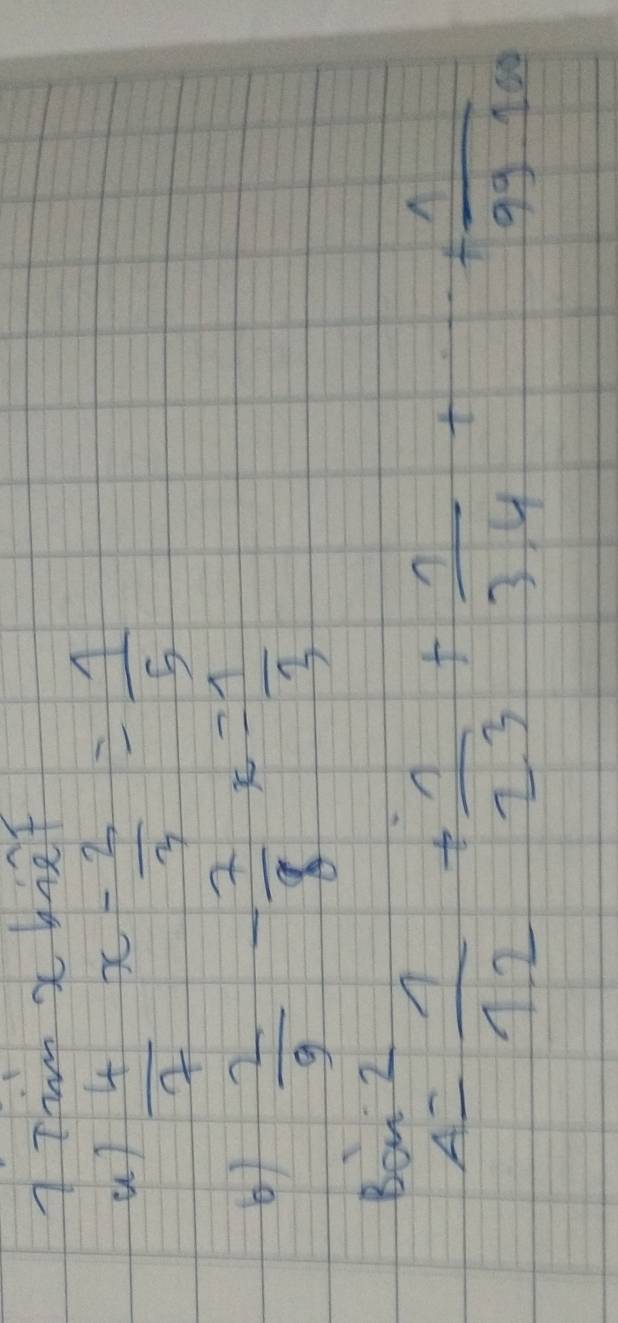 1 Tìm x biết
a) 4/7 x - 2/3 = 1/5
b) 2/9 - 7/8 x = 1/3
Bài 2
A = 1/1.2 + 1/2.3 + 1/3.4 + .... + 1/99.100